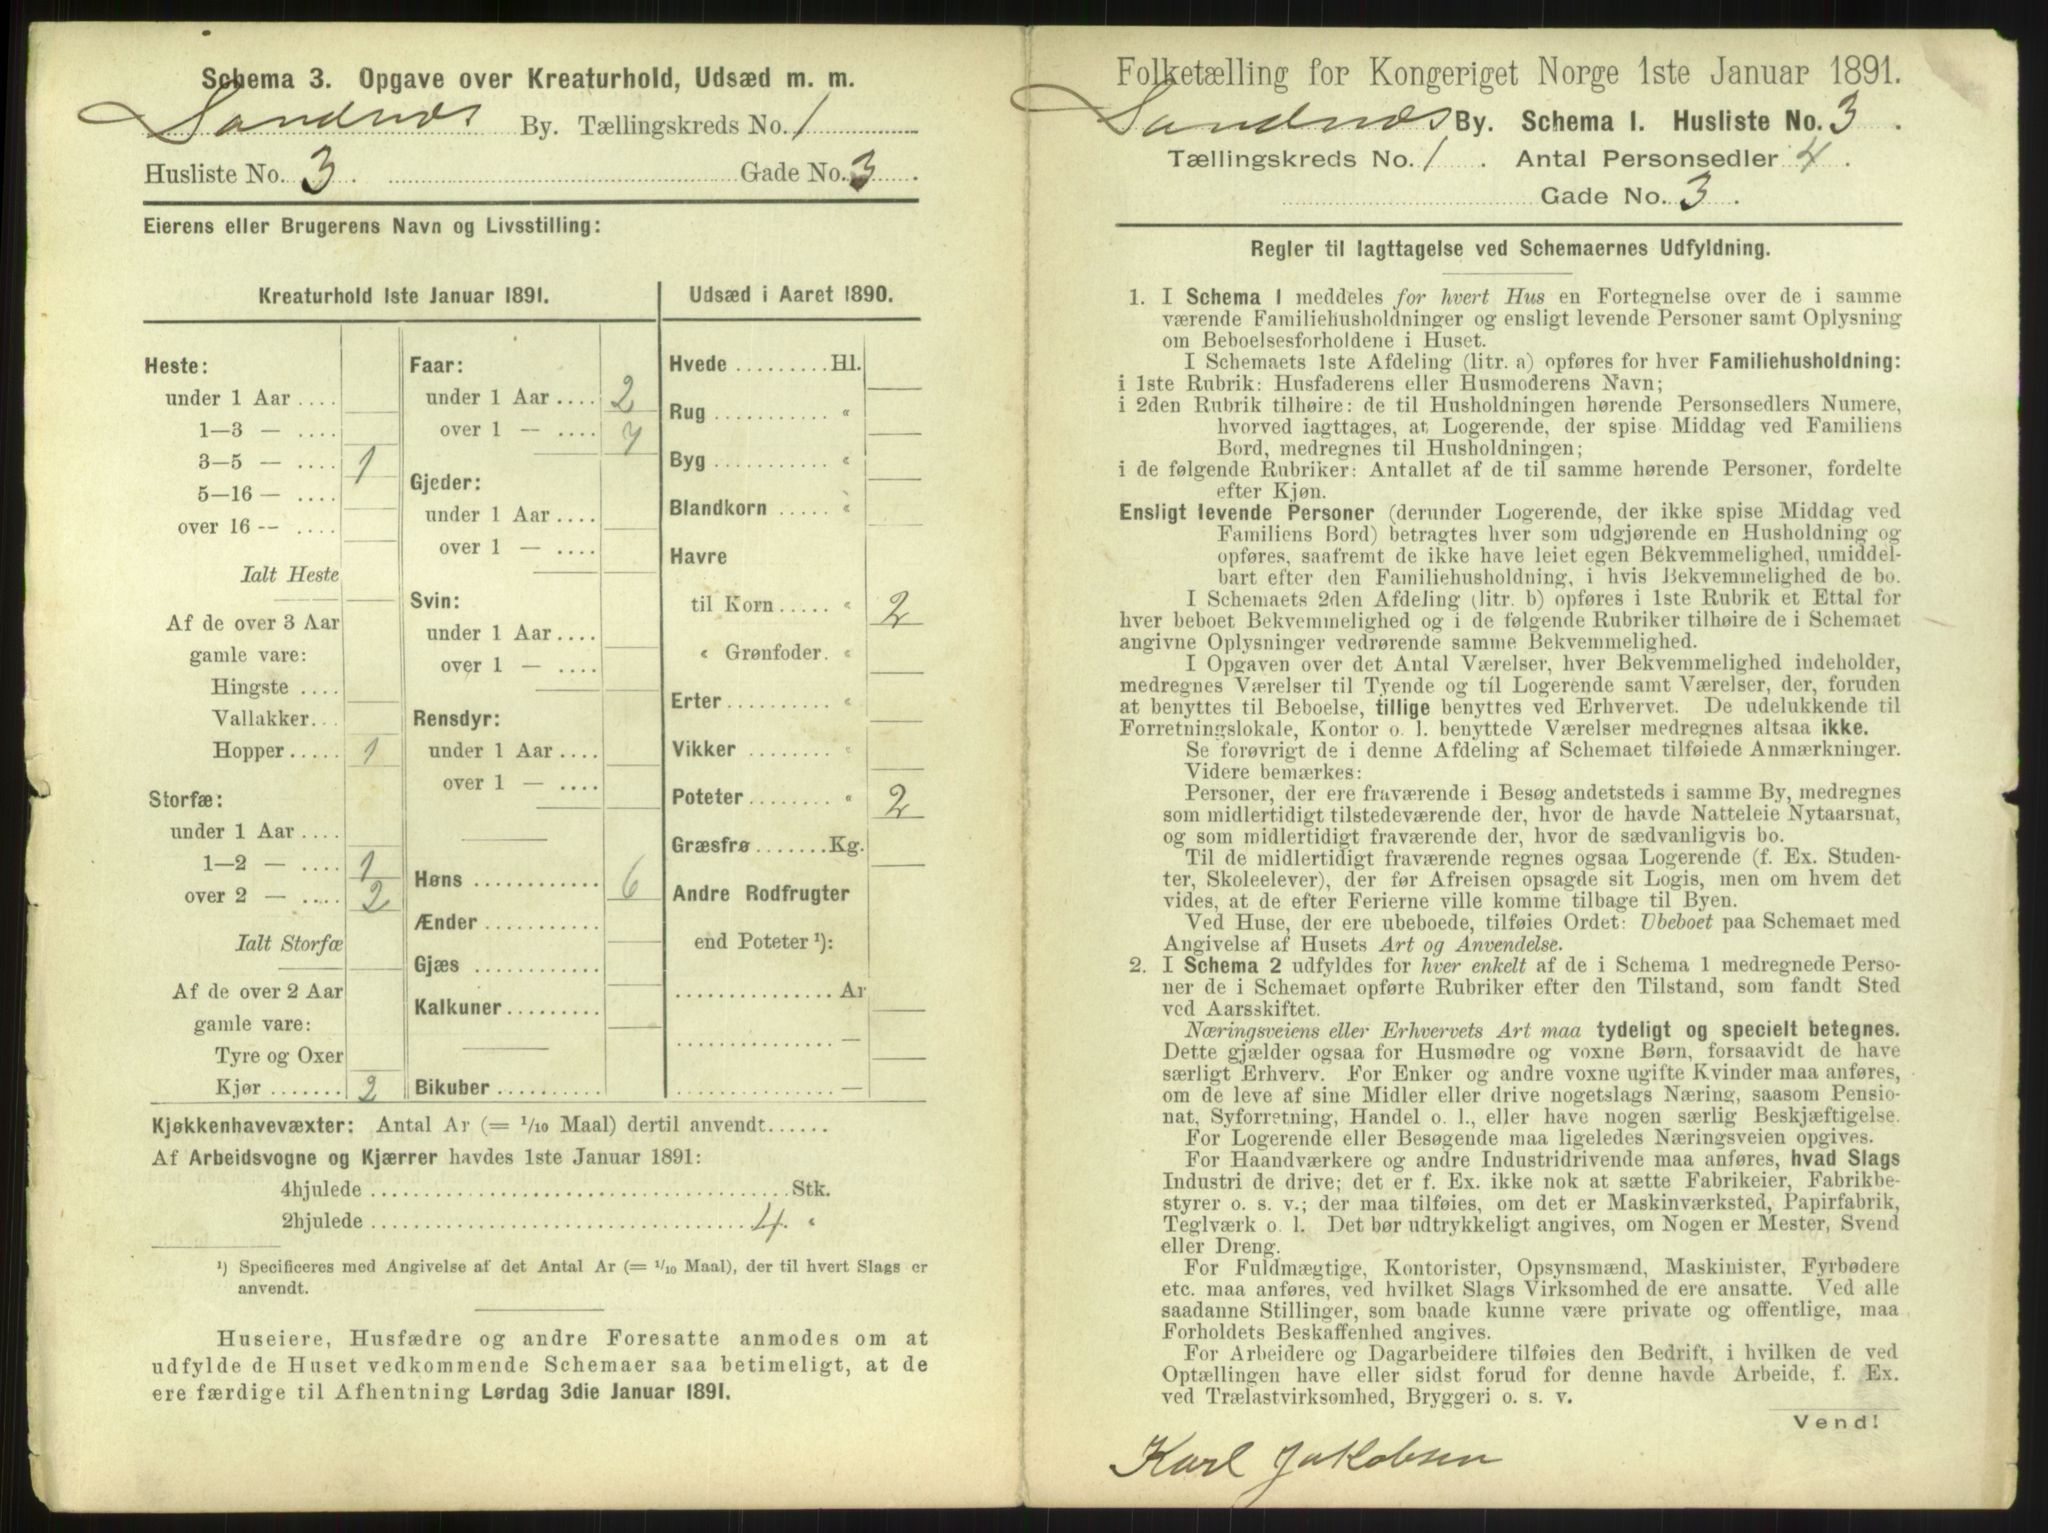 Schema 3. Opgave over Kreaturhold, Udsæd m. m.
Sandnæs By. Tællingskreds No. 1
Husliste No. 3 Gade No. 3
Eierens eller Brugerens Navn og Livsstilling:
Kreaturhold 1ste Januar 1891.
Heste:
under 1 Aar ....
1—3 — ....
3—5 — .... 1
5—16 — ....
over 16 -- ....
Ialt Heste
Af de over 3 Aar
gamle vare:
Hingste ....
Vallakker...
Hopper ..... 1
Storfæ:
under 1 Aar ....
1—2 — .... 1
over 2 — .... 2
Ialt Storfæ
Af de over 2 Aar
gamle vare:
Tyre og Oxer
Kjør ....... 2
Faar:
under 1 Aar .... 2
over 1 — .... 7
Gjeder:
under 1 Aar ....
over 1 — ....
Svin:
under 1 Aar ....
over 1 — ....
Rensdyr:
under 1 Aar ....
over 1 — ....
Høns ............ 6
Ænder ...........
Gjæs ............
Kalkuner.........
Bikuber ..........
Udsæd i Aaret 1890.
Hvede ......... Hl.
Rug ........... "
Byg ........... "
Blandkorn ..... "
Havre
til Korn ..... " 2
" Grønfoder. "
Erter ......... "
Vikker ........ "
Poteter ........ " 2
Græsfrø ....... Kg.
Andre Rodfrugter
end Poteter ¹):
............... Ar
............... —
............... —
Kjøkkenhavevæxter: Antal Ar (= 1/10 Maal) dertil anvendt......
Af Arbeidsvogne og Kjærrer havdes 1ste Januar 1891:
4hjulede ........................................ Stk.
2hjulede .................................... 4. "
¹) Specificeres med Angivelse af det Antal Ar (= 1/10 Maal), der til hvert Slags er
anvendt.
Huseiere, Husfædre og andre Foresatte anmodes om at
udfylde de Huset vedkommende Schemaer saa betimeligt, at de
ere færdige til Afhentning Lørdag 3die Januar 1891.
Folketælling for Kongeriget Norge 1ste Januar 1891.
Sandnæs By. Schema I. Husliste No. 3.
Tællingskreds No. 1. Antal Personsedler 4.
Gade No. 3.
Regler til Iagttagelse ved Schemaernes Udfyldning.
1. I Schema 1 meddeles for hvert Hus en Fortegnelse over de i samme
værende Familiehusholdninger og ensligt levende Personer samt Oplysning
om Beboelsesforholdene i Huset.
I Schemaets 1ste Afdeling (litr. a) opføres for hver Familiehusholdning:
i 1ste Rubrik: Husfaderens eller Husmoderens Navn;
i 2den Rubrik tilhøire: de til Husholdningen hørende Personsedlers Numere,
hvorved iagttages, at Logerende, der spise Middag ved Familiens
Bord, medregnes til Husholdningen;
i de følgende Rubriker: Antallet af de til samme hørende Personer, fordelte
efter Kjøn.
Ensligt levende Personer (derunder Logerende, der ikke spise Middag ved
Familiens Bord) betragtes hver som udgjørende en Husholdning og
opføres, saafremt de ikke have leiet egen Bekvemmelighed, umiddel-
bart efter den Familiehusholdning, i hvis Bekvemmelighed de bo.
I Schemaets 2den Afdeling (litr. b) opføres i 1ste Rubrik et Ettal for
hver beboet Bekvemmelighed og i de følgende Rubriker tilhøire de i Schemaet
angivne Oplysninger vedrørende samme Bekvemmelighed.
I Opgaven over det Antal Værelser, hver Bekvemmelighed indeholder,
medregnes Værelser til Tyende og til Logerende samt Værelser, der, foruden
at benyttes til Beboelse, tillige benyttes ved Erhvervet. De udelukkende til
Forretningslokale, Kontor o. l. benyttede Værelser medregnes altsaa ikke.
Se forøvrigt de i denne Afdeling af Schemaet tilføiede Anmærkninger.
Videre bemærkes:
Personer, der ere fraværende i Besøg andetsteds i samme By, medregnes
som midlertidigt tilstedeværende der, hvor de havde Natteleie Nytaarsnat,
og som midlertidigt fraværende der, hvor de sædvanligvis bo.
Til de midlertidigt fraværende regnes ogsaa Logerende (f. Ex. Studen-
ter, Skoleelever), der før Afreisen opsagde sit Logis, men om hvem det
vides, at de efter Ferierne ville komme tilbage til Byen.
Ved Huse, der ere ubeboede, tilføies Ordet: Ubeboet paa Schemaet med
Angivelse af Husets Art og Anvendelse.
2. I Schema 2 udfyldes for hver enkelt af de i Schema 1 medregnede Perso-
ner de i Schemaet opførte Rubriker efter den Tilstand, som fandt Sted
ved Aarsskiftet.
Næringsveiens eller Erhvervets Art maa tydeligt og specielt betegnes.
Dette gjælder ogsaa for Husmødre og voxne Børn, forsaavidt de have
særligt Erhverv. For Enker og andre voxne ugifte Kvinder maa anføres,
om de leve af sine Midler eller drive nogetslags Næring, saasom Pensio-
nat, Syforretning, Handel o. l., eller have nogen særlig Beskjæftigelse.
For Logerende eller Besøgende maa ligeledes Næringsveien opgives.
For Haandværkere og andre Industridrivende maa anføres, hvad Slags
Industri de drive; det er f. Ex. ikke nok at sætte Fabrikeier, Fabrikbe-
styrer o. s. v.; der maa tilføies, om det er Maskinværksted, Papirfabrik,
Teglværk o. l. Det bør udtrykkeligt angives, om Nogen er Mester, Svend
eller Dreng.
For Fuldmægtige, Kontorister, Opsynsmænd, Maskinister, Fyrbødere
etc. maa anføres, ved hvilket Slags Virksomhed de ere ansatte. Ved alle
saadanne Stillinger, som baade kunne være private og offentlige, maa
Forholdets Beskaffenhed angives.
For Arbeidere og Dagarbeidere tilføies den Bedrift, i hvilken de ved
Optællingen have eller sidst forud for denne havde Arbeide, f. Ex.
ved Trælastvirksomhed, Bryggeri o. s. v.
Vend!
Karl Jakobsen